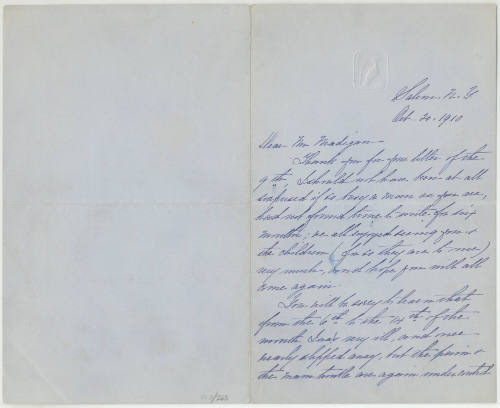 Salem. N. Y
Oct. 20. 1910
Dear Mr Madigan -
Thank you for your letter of the
9th, I should not have been at all
surprised if so busy a man as you are,
had not found time to write for six
months; we all enjoyed seeing you &
the children (for so they are to me)
very much, and hope you will all
come again.
You will be sorry to learn that
from the 6th to the 14th of the
month I was very ill, and once
nearly slipped away, but the pain &
the main trouble are again under control